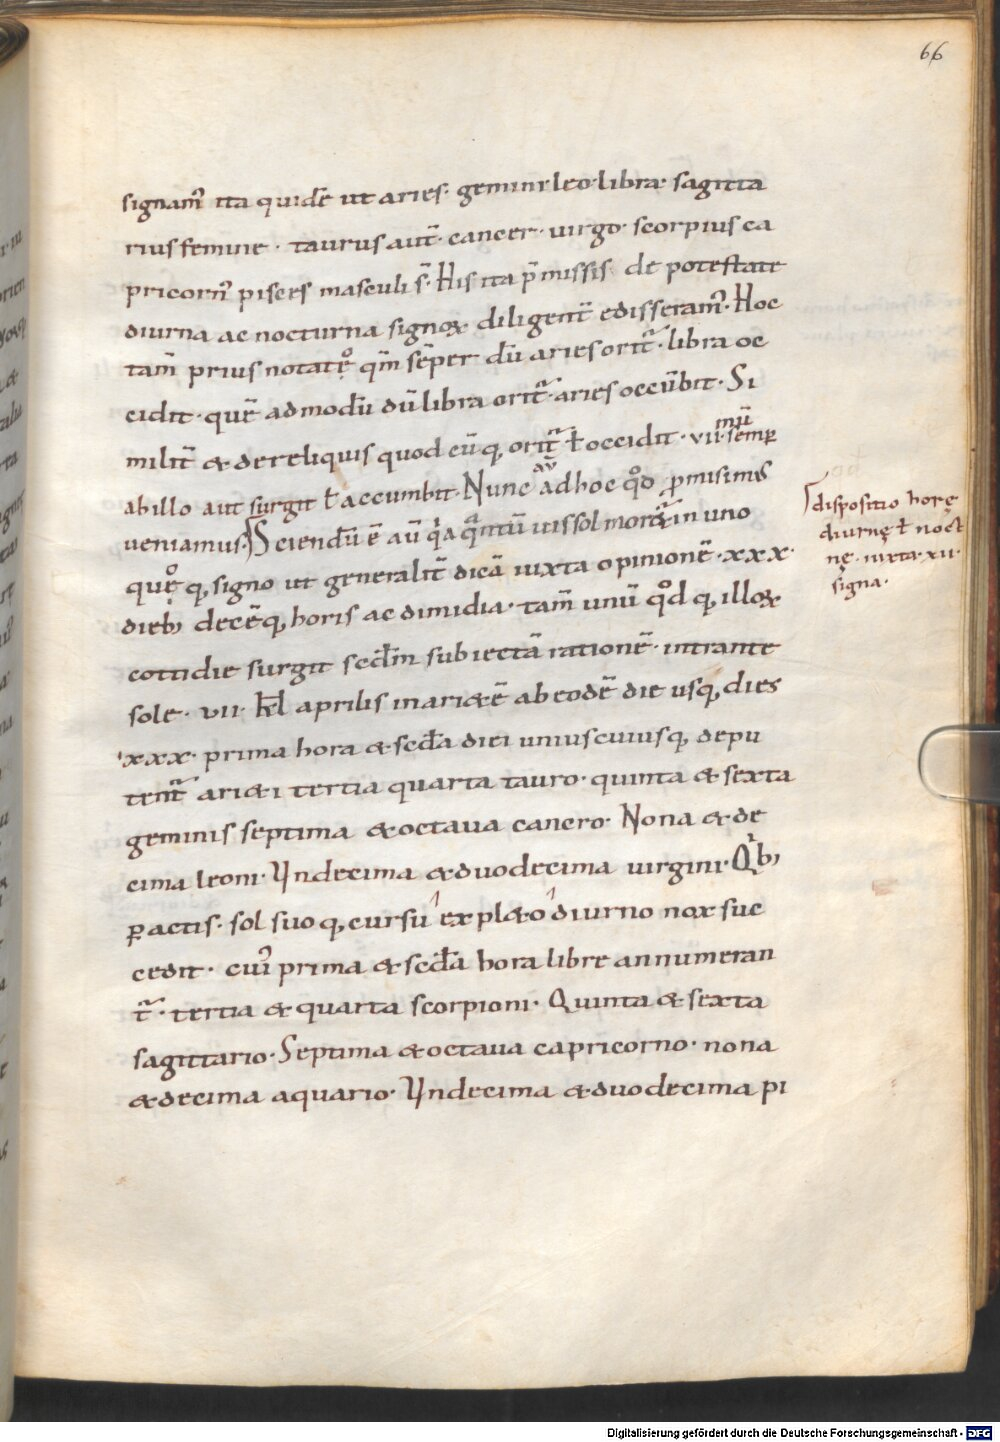 66
signam᷒ ita quidē ut aries· gemini leo libra· sagitta
rius femine· taurus aut̄· cancer· uirgo· scorpius ca
pricorn᷒ pisces masculi s̄· His ita p̄missis de potestate
diurna ac nocturna signoꝝ diligent̄ edisseram᷒· Hoc
tam̄ prius notatę qm̄ sēper dū aries orit᷒· libra oc
cidit· quē admodū dū libra orit᷒· aries occūbit· Si
milit̄ & de reliquis quod cūq, orit᷒ ł occidit· uii· semp
mū
ab illo aut surgit ł accumbit· Nunc ad hoc qd̊ promisim᷒
au̅
ueniamus· Sciendū ē aū qͥa qͣntū uis sol moret᷒ in uno
quoq, signo ut generalit̄ dicā iuxta opinionē· xxx·
dieb; decēq, horis ac dimidia· tam̄ unū qd̊ q, illoꝝ
cottidie surgit scd̄m subiectā rationē· intrante
sole· uii· kł aprilis in ariete ab eodē die usq, dies
·xxx· prima hora & scd̄a diei unius cuiusq, depu
tent᷒ arieti tertia quarta tauro· quinta & sexta
geminis septima & octaua cancro· Nona & de
cima leoni· Undecima & duodecima uirgini· Qͥb;
ꝑactis· sol suo q, cursu expl&o diurno nox suc
cedit· cui᷒ prima & scd̄a hora libre annumeran
t᷒· tertia & quarta scorpioni· Quinta & sexta
sagittario· Septima & octaua capricorno· nona
& decima aquario· Undecima & duodecima pi
dispositio horę
diurnę ł noct
nę· iuxta· xii·
signa·
Digitalisierung gefördert durch die Deutsche Forschungsgemeinschaft - DFG